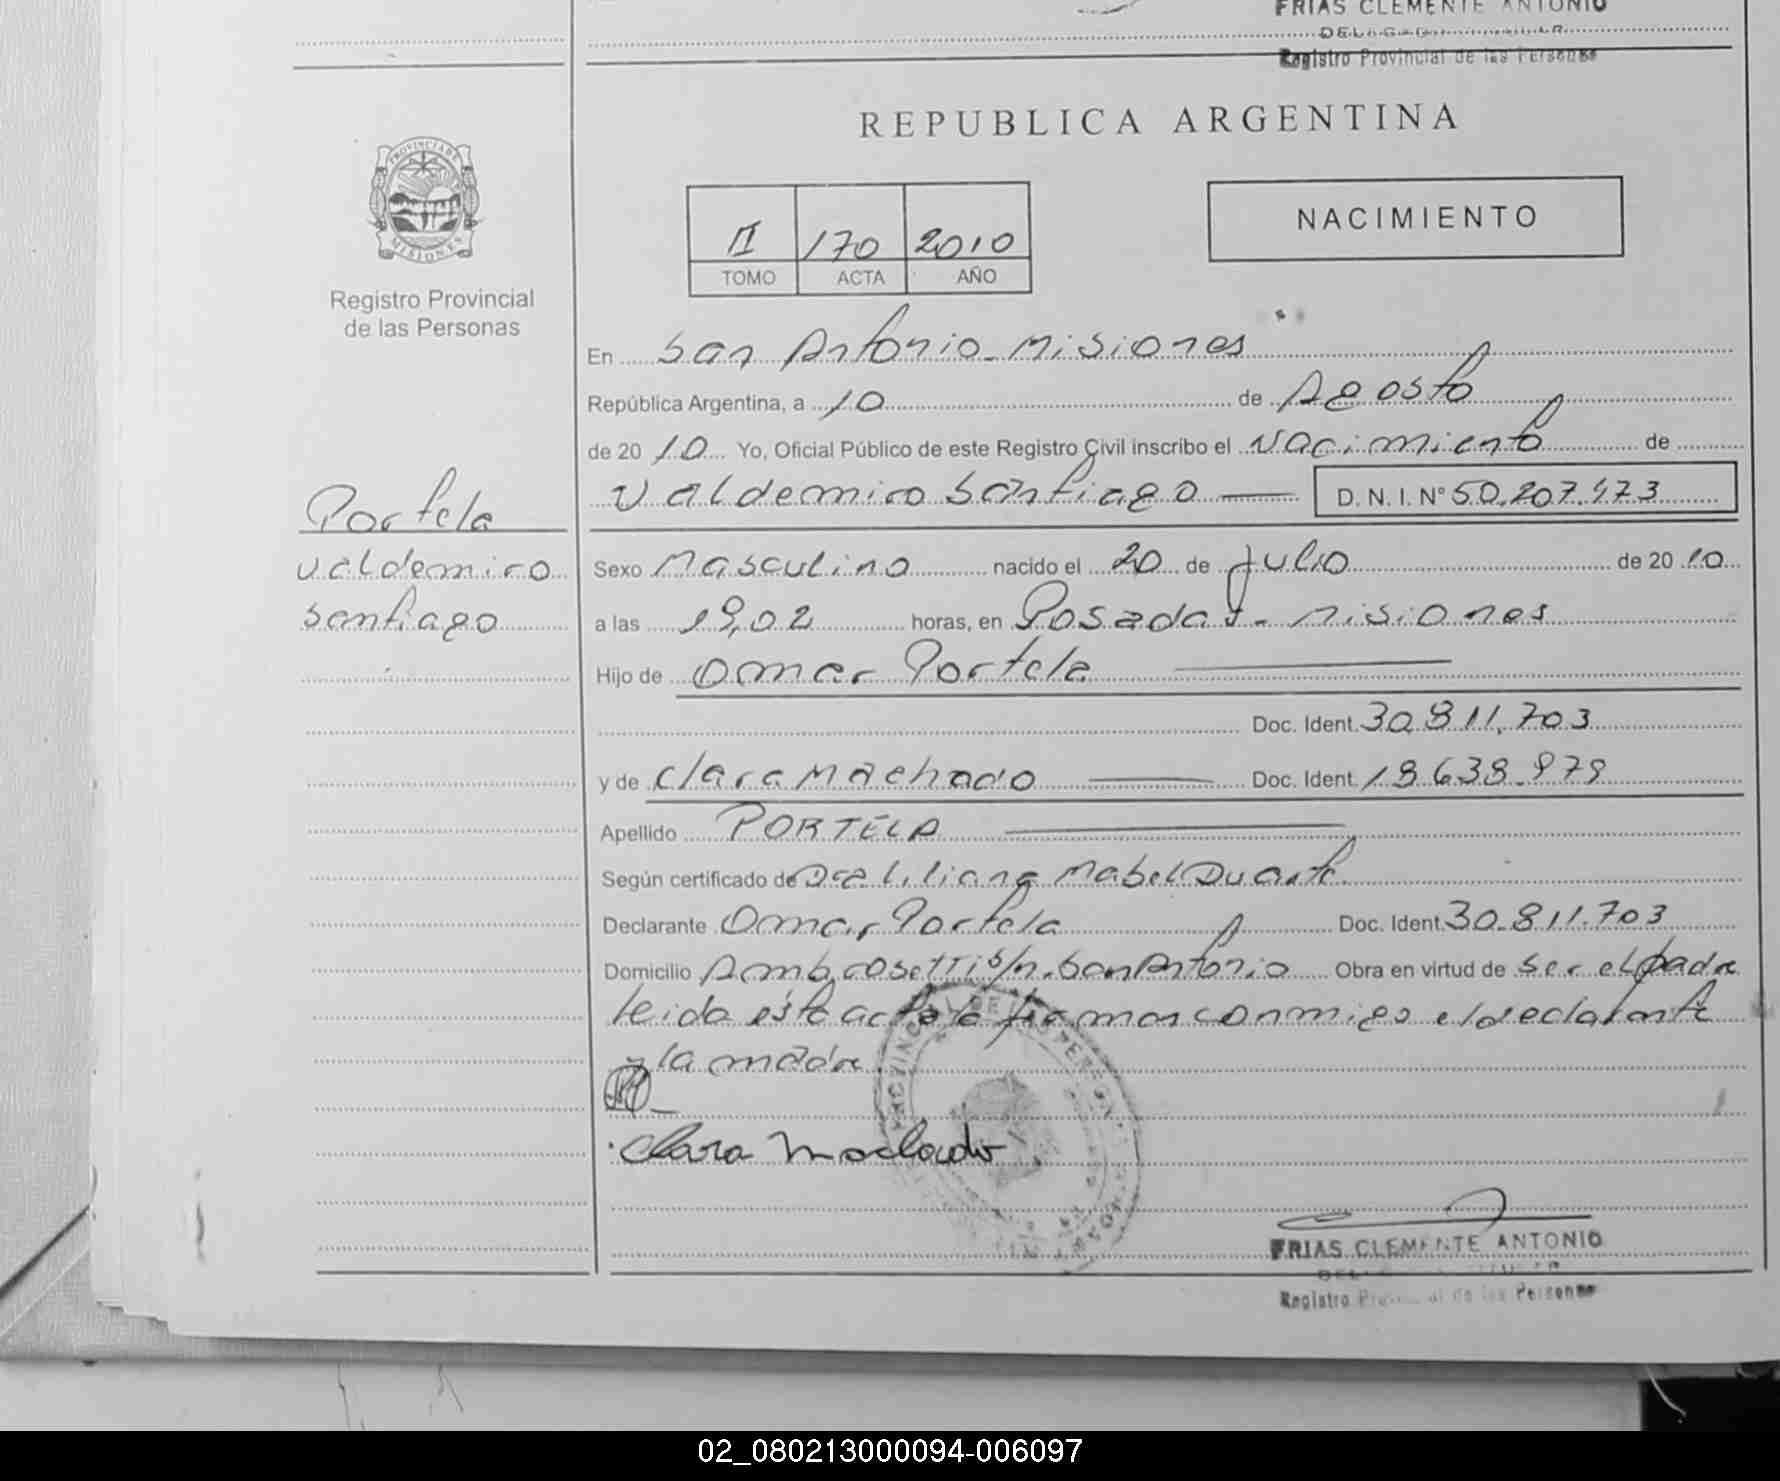 FRIAS CLEMENTE ANTONIO
Registro Provincial de las Personas
REPUBLICA ARGENTINA
PROVINCIA DE MISIONES
Registro Provincial
de las Personas
II 170 2010
TOMO ACTA AÑO
NACIMIENTO
En San Antonio - Misiones
República Argentina, a 10 de Agosto
de 2010 Yo, Oficial Público de este Registro Civil inscribo el Nacimiento de
Valdemiro Santiago D. N. I. N° 50.207.473
Portela
Valdemiro
Santiago
Sexo Masculino nacido el 20 de Julio de 2010
a las 19,02 horas, en Posadas - Misiones
Hijo de Omar Portela
Doc. Ident. 30.811.703
y de Clara Machado Doc. Ident. 18.638.979
Apellido PORTELA
Según certificado de Dra Liliana Mabel Duarte
Declarante Omar Portela Doc. Ident. 30.811.703
Domicilio Ambrosetti s/n. San Antonio Obra en virtud de ser el padre
leida esta acta la firman conmigo el declarante
y la madre
Clara Machado
FRIAS CLEMENTE ANTONIO
Registro Provincial de las Personas
02_080213000094-006097